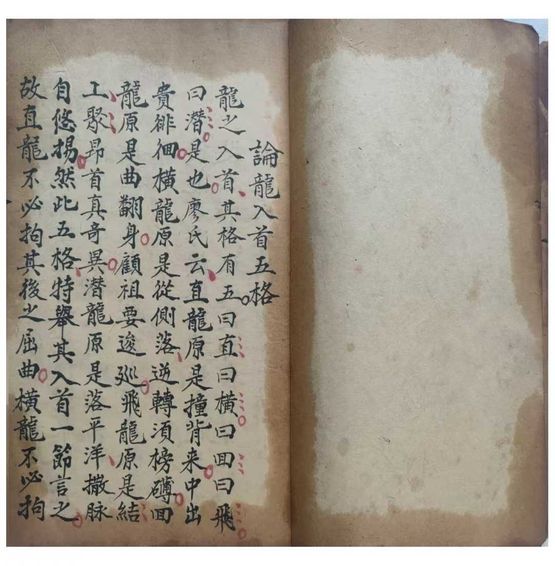 論龍入首五格
龍之入首其格有五曰直曰橫曰囬曰飛
曰潛是也廖氏云直龍原是撞背来中出
貴徘徊橫龍原是從側落逆轉須榜礴囬
龍原是曲翻身顧祖要逡廵飛龍原是結
工聚昂首真奇異潛龍原是落平洋撒脉
自悠揚然此五格特舉其入首一節言之
故直龍不必拘其後之屈曲橫龍不必拘